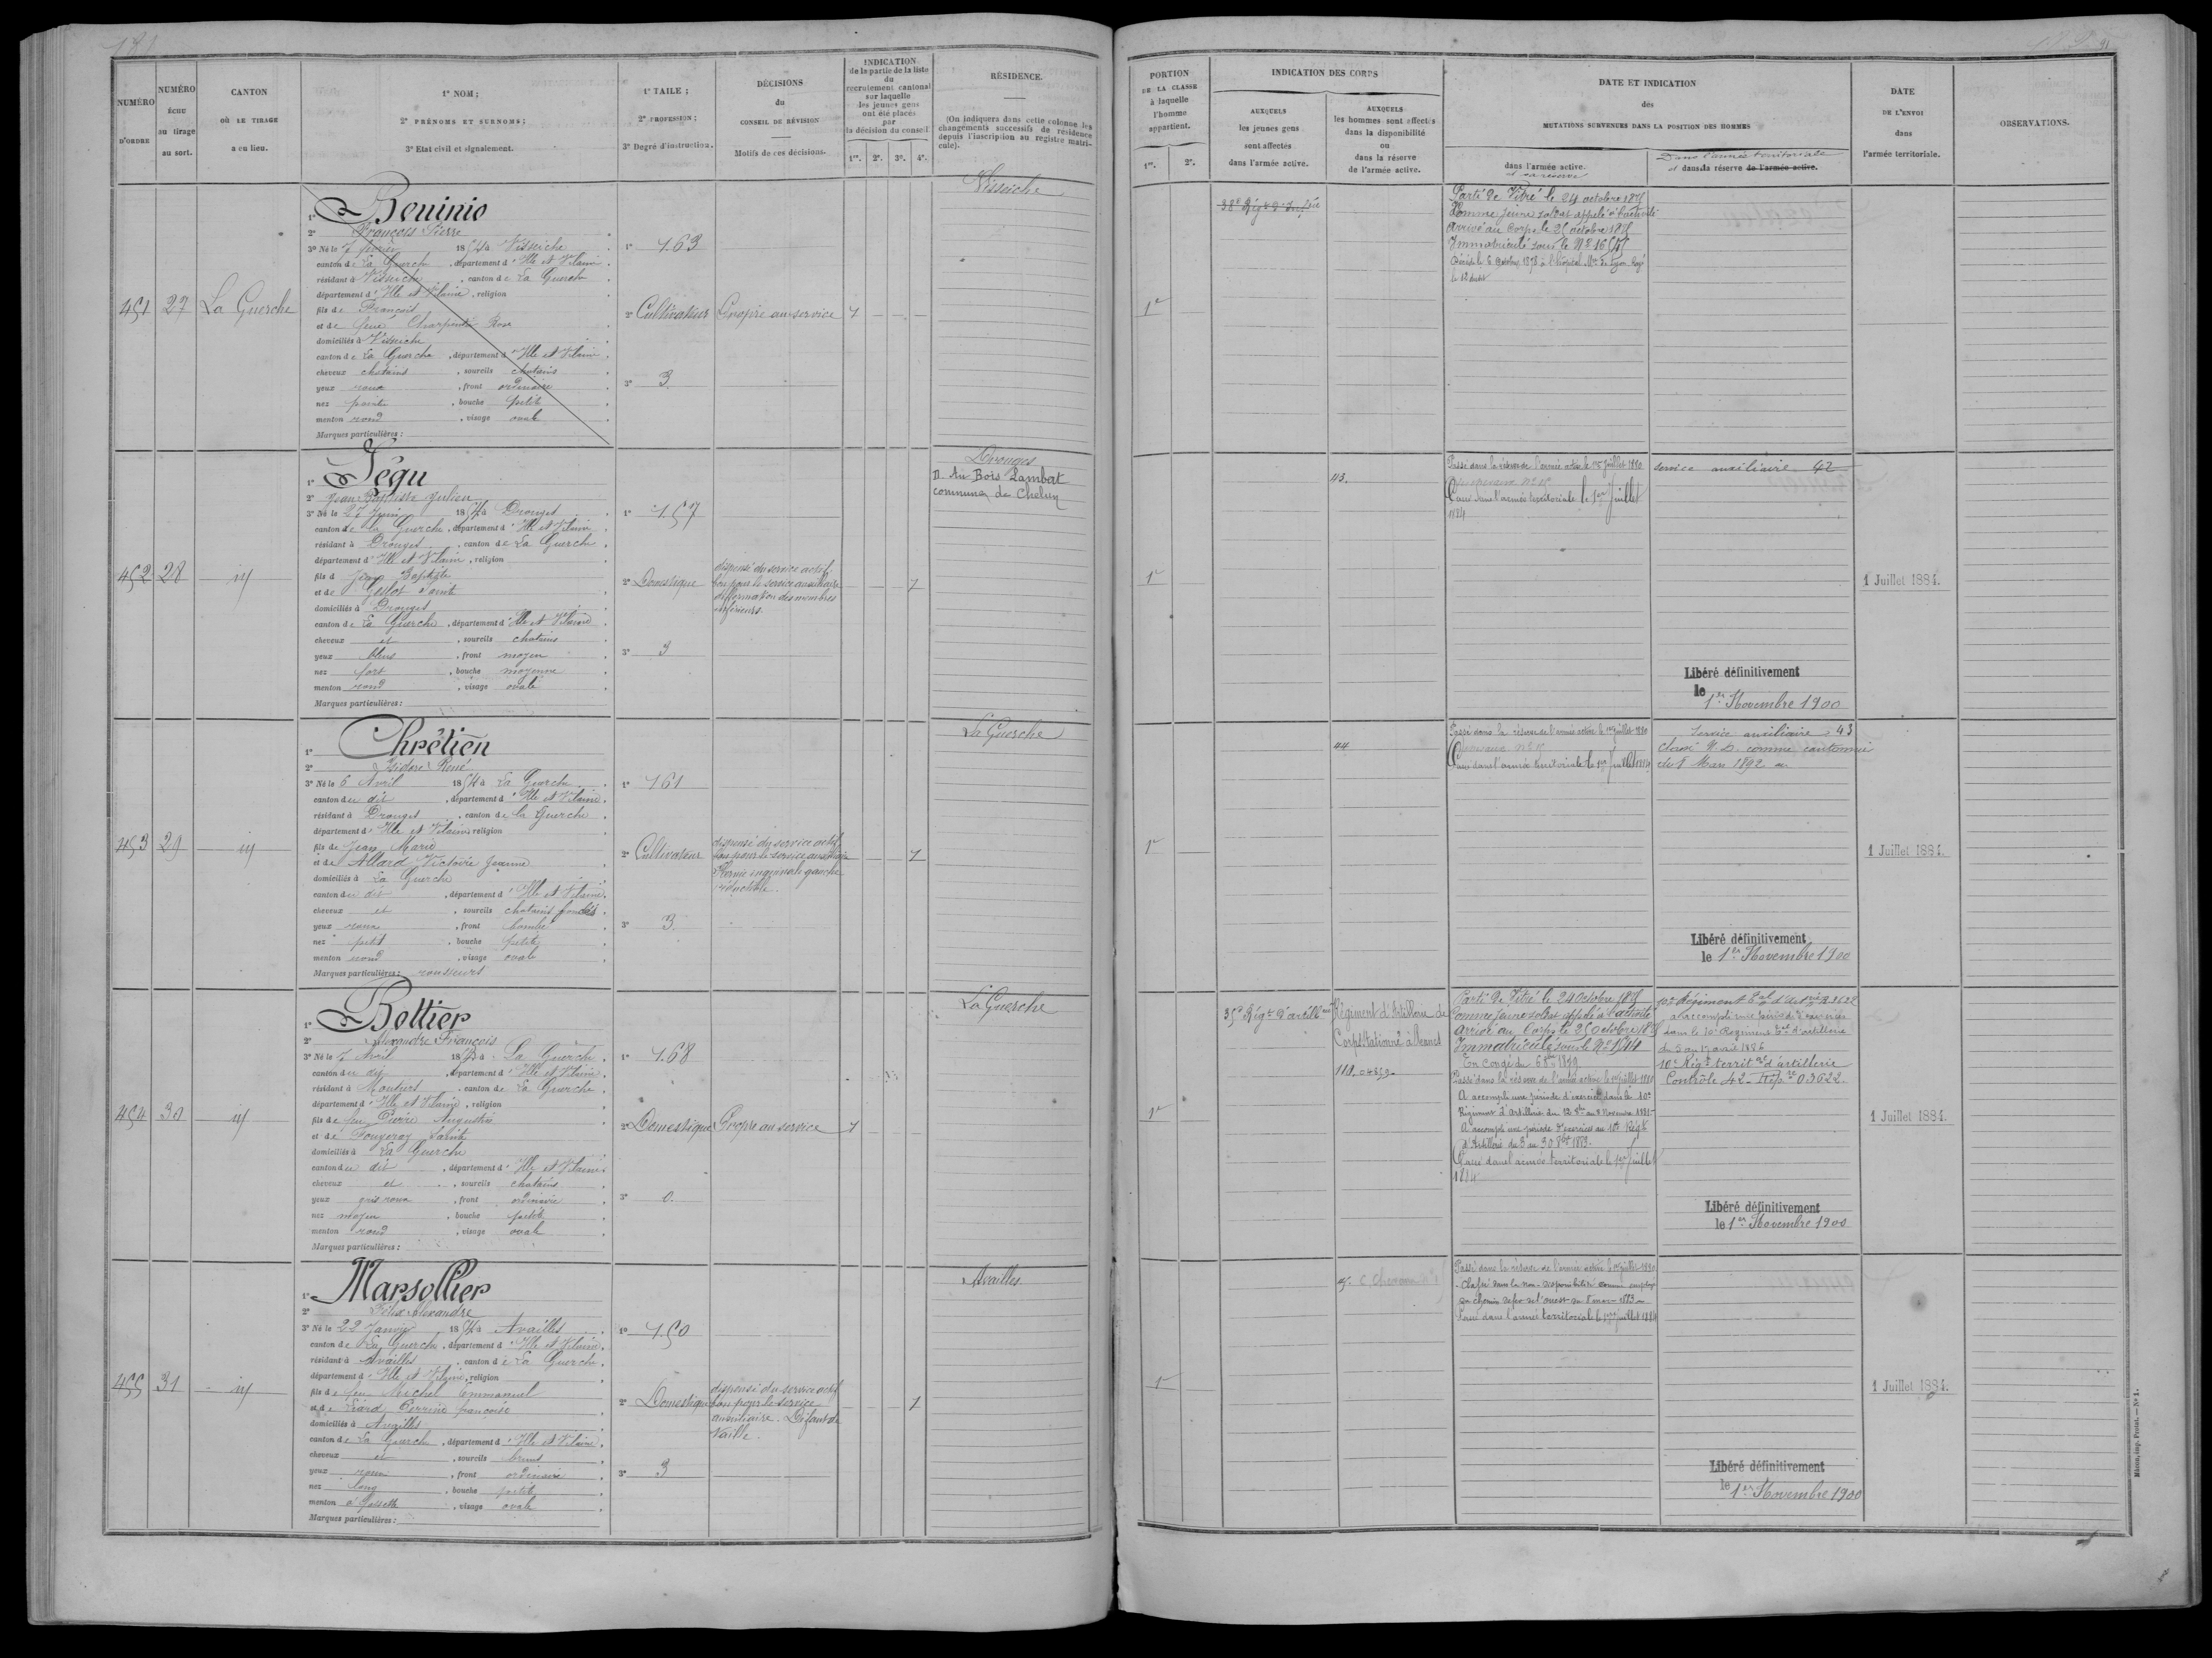 181
NUMÉRO D'ORDRE
NUMÉRO ÉCHU au tirage au sort.
CANTON OÙ LE TIRAGE a eu lieu.
1° NOM;
2° PRÉNOMS ET SURNOMS;
3° Etat civil et signalement.
1° TAILE;
2° PROFESSION;
3° Degré d'instruction.
DÉCISIONS du CONSEIL DE RÉVISION
Motifs de ces décisions.
INDICATION
de la partie de la liste
du
recrutement cantonal
sur laquelle
les jeunes gens
ont été placés
par
la décision du conseil
1re. 2e. 3e. 4e.
RÉSIDENCE.
(On indiquera dans cette colonne les
changements successifs de résidence
depuis l'inscription au registre matri-
cule).
PORTION
DE LA CLASSE
à laquelle
l'homme
appartient.
1re. 2e.
INDICATION DES CORPS
AUXQUELS
les jeunes gens
sont affectés
dans l'armée active.
AUXQUELS
les hommes sont affectés
dans la disponibilité
ou
dans la réserve
de l'armée active.
DATE ET INDICATION
des
MUTATIONS SURVENUES DANS LA POSITION DES HOMMES
dans l'armée active.
et sa réserve
Dans l'armée territoriale
et dans la réserve de l'armée active.
DATE
DE L'ENVOI
dans
l'armée territoriale.
OBSERVATIONS.
451 27 La Guerche
1°
2° François Pierre
3° Né le 7 février 1854 à Visseiche
canton de La Guerche, département d'Ille et Vilaine
résidant à Visseiche, canton de La Guerche
département d'Ille et Vilaine, religion
fils de François
et de feue Charpentier Rose
domiciliés à Visseiche
canton de La Guerche, département d'Ille et Vilaine
cheveux chatains, sourcils chatains
yeux roux, front ordinaire
nez pointu, bouche petite
menton rond, visage ovale
Marques particulières:
1° 1.63
2° Cultivateur
3° 3
Propre au service
1
Visseiche
1e
38e Régt d'Infrie
Parti de Vitré le 24 octobre 1875
Comme jeune soldat appelé à l'activité
Arrivé au Corps le 25 octobre 1875
Immatriculé sous le No
Décédé le 6 Octobre 1878 à l'hôpital Mre de Lyon
452 28 id
1° Jégu
2° Jean Baptiste Julien
3° Né le 27 Juin 1854 à Drouges
canton de la Guerche, département d'Ille et Vilaine
résidant à Drouges, canton de La Guerche
département d'Ille et Vilaine, religion
fils d Jean Baptiste
et de Geslot Sainte
domiciliés à Drouges
canton de La Guerche, département d'Ille et Vilaine
cheveux et, sourcils chatains
yeux bleus, front moyen
nez fort, bouche moyenne
menton rond, visage ovale
Marques particulières:
1° 1.57
2° Domestique
3° 3
dispensé du service actif,
bon pour le service auxiliaire
déformation des membres
inférieurs.
1
Drouges
D. Au Bois Lambat
commune de Chelun
1e
43.
Passé dans la réserve de l'armée active le 1er Juillet 1880
Passé dans l'armée territoriale le 1er Juillet
1884
service auxiliaire 42
Libéré définitivement
le 1er Novembre 1900
1 Juillet 1884.
453 29 id
1° Chrétien
2° Isidore René
3° Né le 6 Avril 1854 à La Guerche
canton du dit, département d'Ille et Vilaine
résidant à Drouges, canton de la Guerche
département d'Ille et Vilaine, religion
fils de Jean Marie
et de Allard Victoire Jeanne
domiciliés à La Guerche
canton du dit, département d'Ille et Vilaine
cheveux et, sourcils chatains foncés
yeux roux, front bombé
nez petit, bouche petite
menton rond, visage ovale
Marques particulières: rousseurs
1° 1.61
2° Cultivateur
3° 3
dispensé du service actif,
bon pour le service auxiliaire
Hernie inguinale gauche
réductible.
1
La Guerche
1e
44
Passé dans la réserve de l'armée active le 1er Juillet 1880
Passé dans l'armée territoriale le 1er Juillet 1884
Service auxiliaire 43
Classé N.D. comme cantonnier
du 1 Mars 1892
Libéré définitivement
le 1er Novembre 1900
1 Juillet 1884.
454 30 id
1° Bottier
2° Alexandre François
3° Né le 7 Avril 1854 à La Guerche
canton du dit, département d'Ille et Vilaine
résidant à Moutiers, canton de La Guerche
département d'Ille et Vilaine, religion
fils de feu Pierre Augustin
et de Fougeray Sainte
domiciliés à La Guerche
canton du dit, département d'Ille et Vilaine
cheveux et, sourcils chatains
yeux gris roux, front ordinaire
nez moyen, bouche petite
menton rond, visage ovale
Marques particulières:
1° 1.68
2° Domestique
3° 0.
Propre au service
1
La Guerche
1e
35e Régt d'artillerie
Régiment d'Artillerie de
Corps stationné à Vannes
Parti de Vitré le 24 Octobre 1875
Comme jeune soldat appelé à l'activité
Arrivé au Corps le 25 octobre 1875
Immatriculé sous le No
Passé dans la réserve de l'armée active le 1er Juillet 1880
A accompli une période d'exercices dans le 10e
Régiment d'Artillerie du 12 8bre au 8 Novembre 1881
A accompli une période d'exercices au 10e Régt
d'Artillerie du 3 au 30 8bre 1883.
Passé dans l'armée territoriale le 1er Juillet
1884
10e Régiment
a accompli une période d'exercices
dans le 10e Régiment Tal d'artillerie
du 5 au 17 avril 1886
10e Régt territal d'artillerie
Contrôle 42 Rép. re 03622
Libéré définitivement
le 1er Novembre 1900
1 Juillet 1884.
455 31 id
1° Marsollier
2° Félix Alexandre
3° Né le 22 Janvier 1854 à Availles
canton de La Guerche, département d'Ille et Vilaine
résidant à Availles, canton de La Guerche
département d'Ille et Vilaine, religion
fils de feu Michel Emmanuel
et de Perrine françoise
domiciliés à Availles
canton de La Guerche, département d'Ille et Vilaine
cheveux et, sourcils bruns
yeux roux, front ordinaire
nez long, bouche petite
menton à fossette, visage ovale
Marques particulières:
1° 1.50
2° Domestique
3° 3
dispensé du service actif
bon pour le service
auxiliaire. Défaut de
taille.
1
Availles
1e
Passé dans la réserve de l'armée active le 1er Juillet 1880
Classé dans la non-disponibilité comme employé
au chemin de fer de l'ouest du 8 mars 1883
Passé dans l'armée territoriale le 1er Juillet 1884
Libéré définitivement
le 1er Novembre 1900
1 Juillet 1884.
Mâcon, imp. Protat. — No 1.